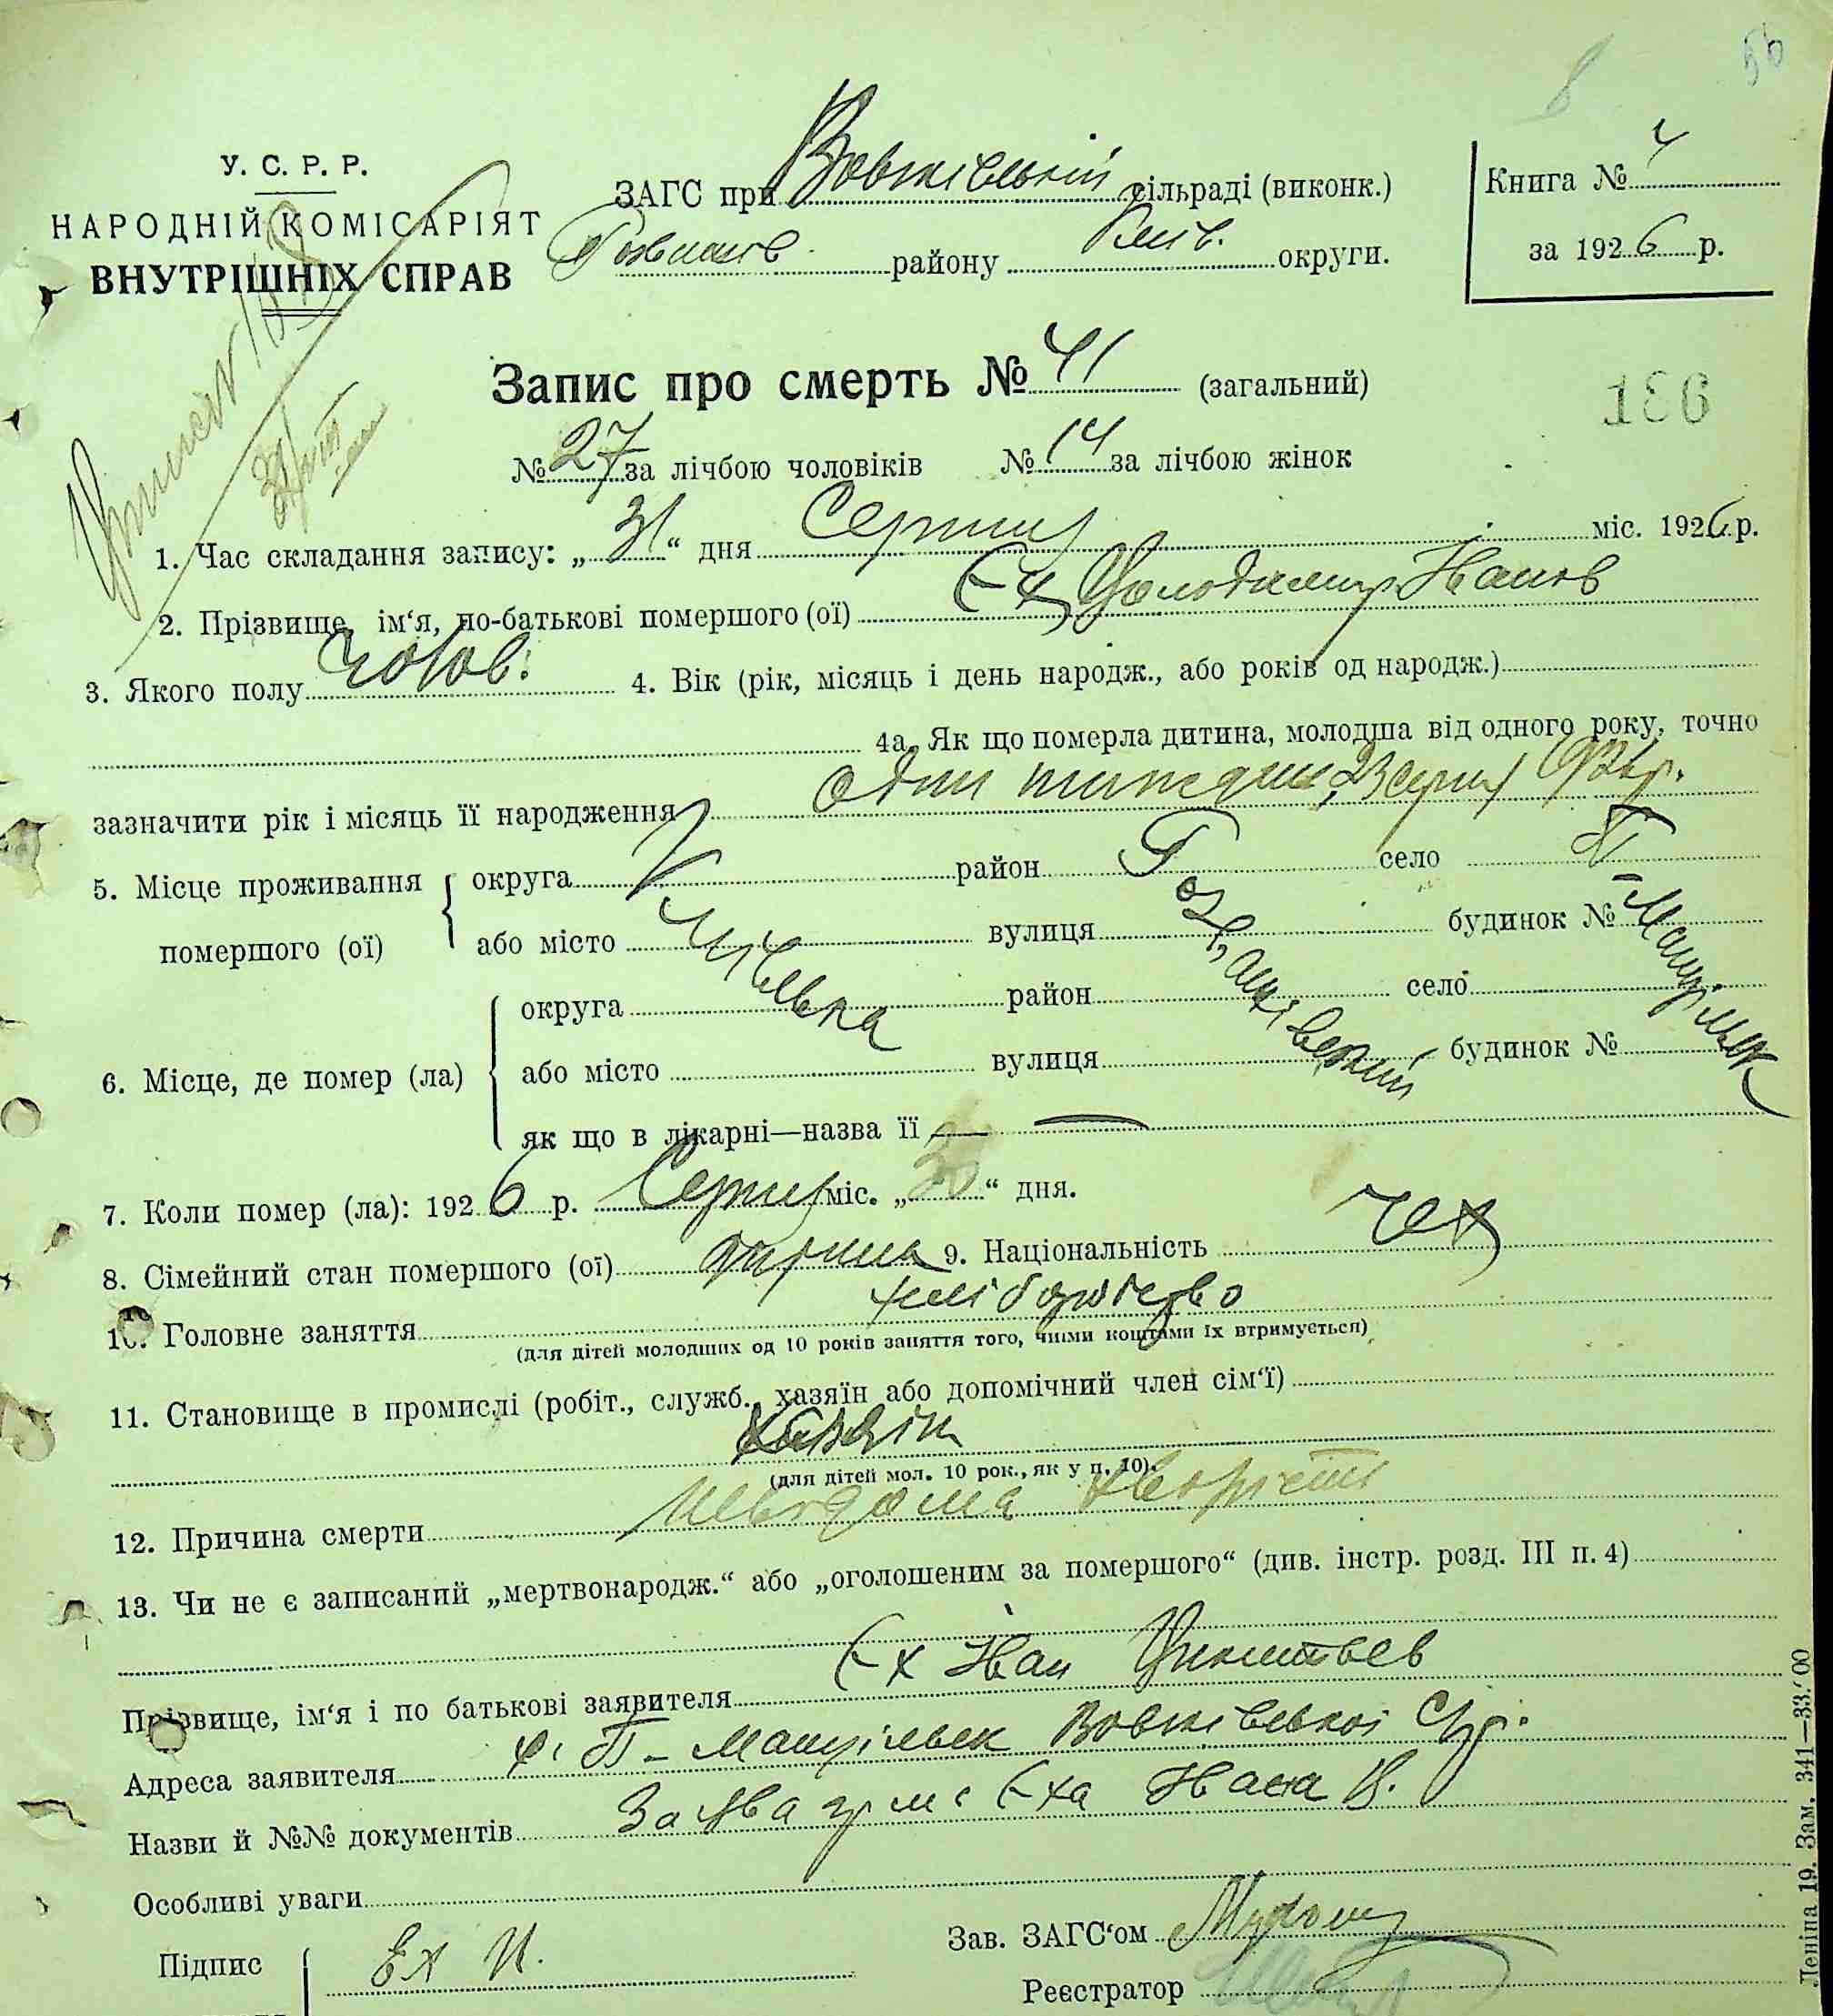 56
У. С. Р. Р.
НАРОДНІЙ КОМІСАРІЯТ
ВНУТРІШНІХ СПРАВ
ЗАГС при Вовківській сільраді (виконк.)
району Київ. округи.
Книга № 4
за 1926 р.
Запис про смерть № 41 (загальний)
186
№ 27 за лічбою чоловіків № 14 за лічбою жінок
1. Час складання запису: „ 31 “ дня Серпня міс. 1926 р.
2. Прізвище, ім‘я, по-батькові помершого (ої) Ех Володимир Іванов
3. Якого полу чолов. 4. Вік (рік, місяць і день народж., або років од народж.)
4а. Як що померла дитина, молодша від одного року, точно
зазначити рік і місяць її народження один тиждень, 23 серпн 926 р.
5. Місце проживання помершого (ої) округа район село
або місто вулиця будинок №
Київська
6. Місце, де помер (ла) округа район село
або місто вулиця будинок №
як що в лікарні—назва її —
7. Коли помер (ла): 1926 р. Серпня міс. „ 30 “ дня.
8. Сімейний стан помершого (ої) дитина 9. Національність Чех
10. Головне заняття хліборобство
(для дітей молодших од 10 років заняття того, чиїми коштами їх втримується)
11. Становище в промислі (робіт., служб., хазяїн або допомічний член сім‘ї)
хазяїн
(для дітей мол. 10 рок., як у п. 10).
12. Причина смерти невідома
13. Чи не є записаний „мертвонародж.“ або „оголошеним за помершого“ (див. інстр. розд. III п. 4)
Прізвище, ім‘я і по батькові заявителя Ех Іван
Адреса заявителя Вовківської
Назви й №№ документів Заява гром. Еха Івана В.
Особливі уваги
Підпис Ех И.
Зав. ЗАГС‘ом
Реєстратор
Леніна 19. Зам. 341—33.‘00